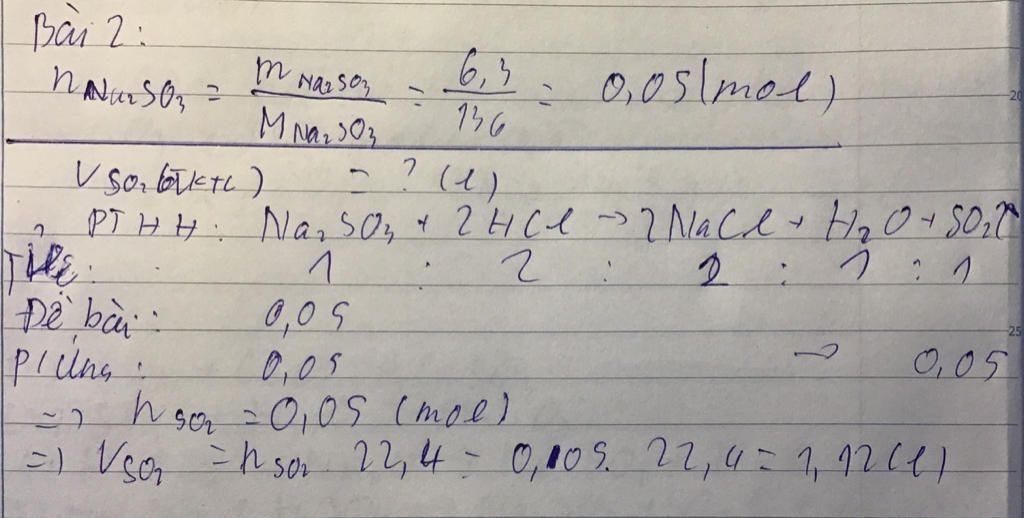 Bài 2:
nNa₂SO₃ = mNa₂SO₃ / MNa₂SO₃ = 6,3 / 126 = 0,05 (mol)
VSO₂ (ĐKTC) = ? (l)
PTHH: Na₂SO₃ + 2HCl → 2NaCl + H₂O + SO₂↑
1 : 2 : 2 : 1 : 1
Đề bài: 0,05
P/ứng: 0,05 → 0,05
=> nSO₂ = 0,05 (mol)
=> VSO₂ = nSO₂ . 22,4 = 0,05. 22,4 = 1,12 (l)
20
25